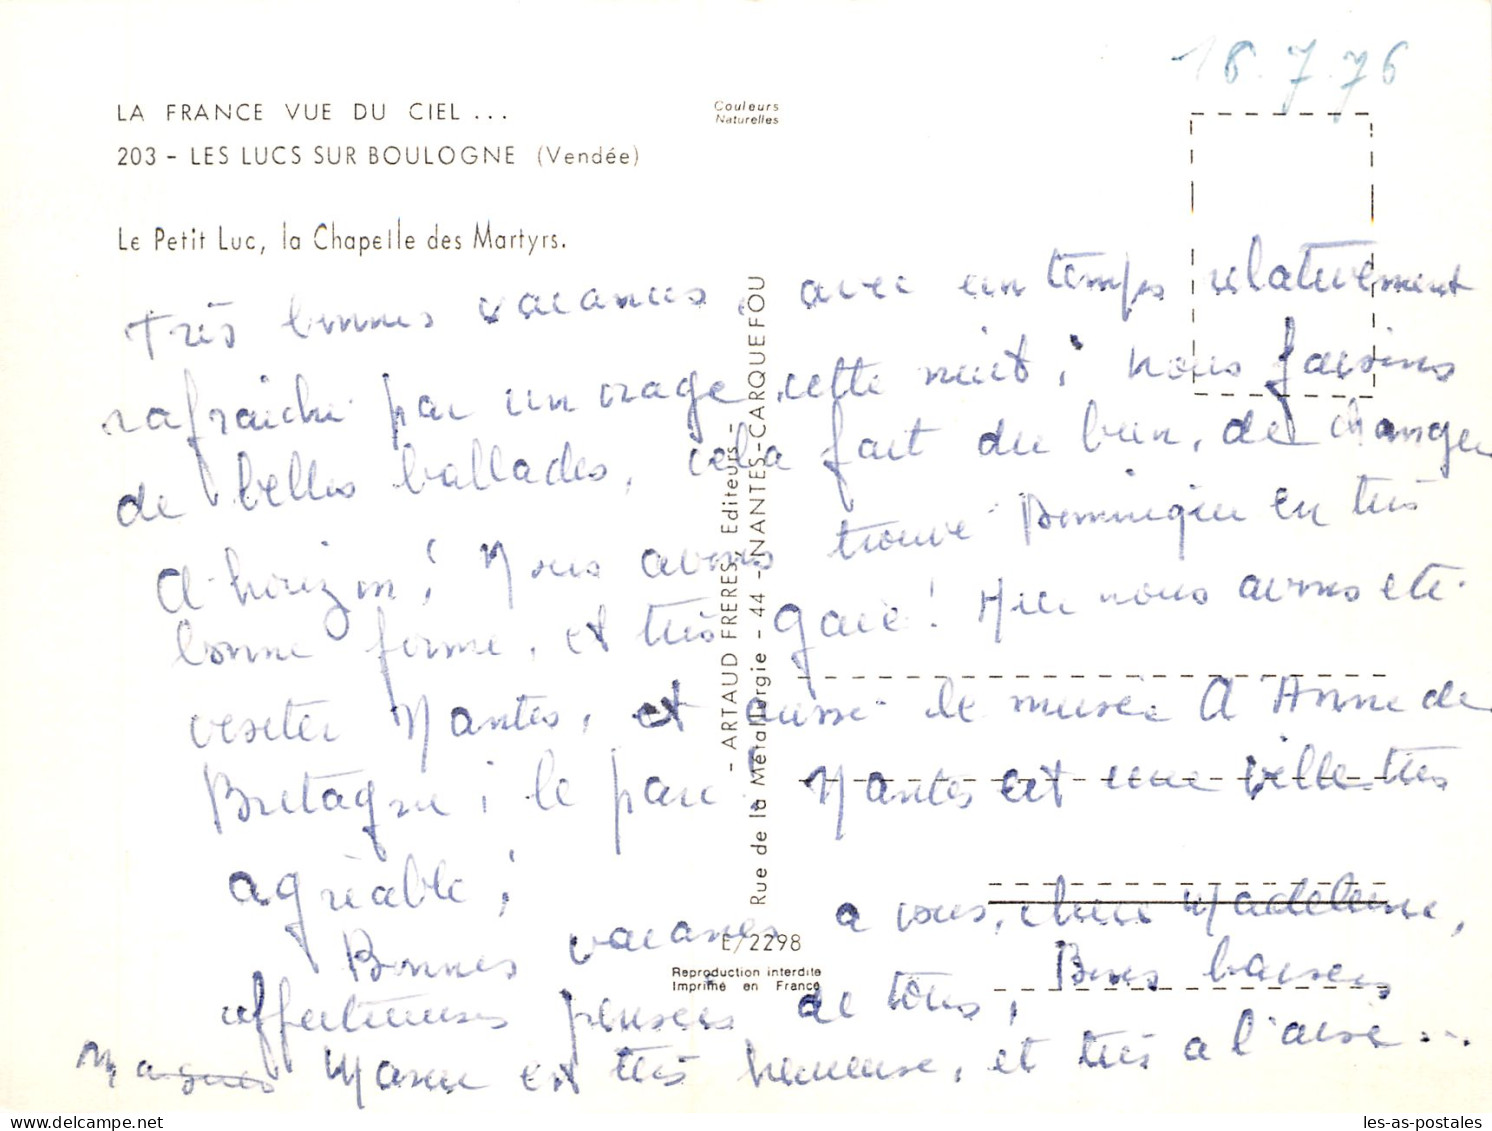 18.7.76
LA FRANCE VUE DU CIEL ...
Couleurs
Naturelles
203 - LES LUCS SUR BOULOGNE (Vendée)
Le Petit Luc, la Chapelle des Martyrs.
Très bonnes vacances, avec un temps relativement
rafraichi par un orage cette nuit ; nous faisons
de belles ballades, cela fait du bien, de changer
d'horizon ! Nous avons trouvé Dominique en très
bonne forme, et très gaie ! Hier nous avons été
visiter Nantes, et aussi le musée d'Anne de
Bretagne ; le parc ! Nantes est une ville très
agréable ;
Bonnes vacances a vous, chère Madeleine,
affectueuses pensées de tous, Bons baisers
Marie est très heureuse, et très a l'aise...
- ARTAUD FRERES, Editeurs -
Rue de la Métallurgie - 44 - NANTES-CARQUEFOU
E/2298
Reproduction interdite
Imprimé en France
les-as-postales